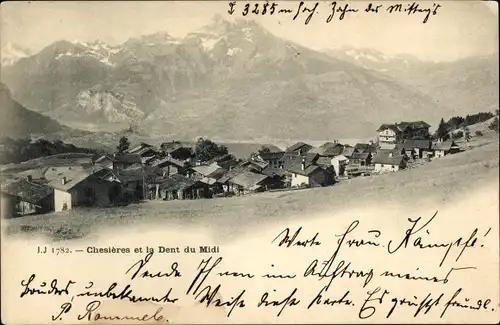 3285 m hoch, Zahn des Mittags
J.J 1782. — Chesières et la Dent du Midi
Werte Frau Kämpfe!
Sende Ihnen im Auftrag meines
Bruders, unbekannter Weise diese Karte. Es grüsst freundl.
P. Rommel.